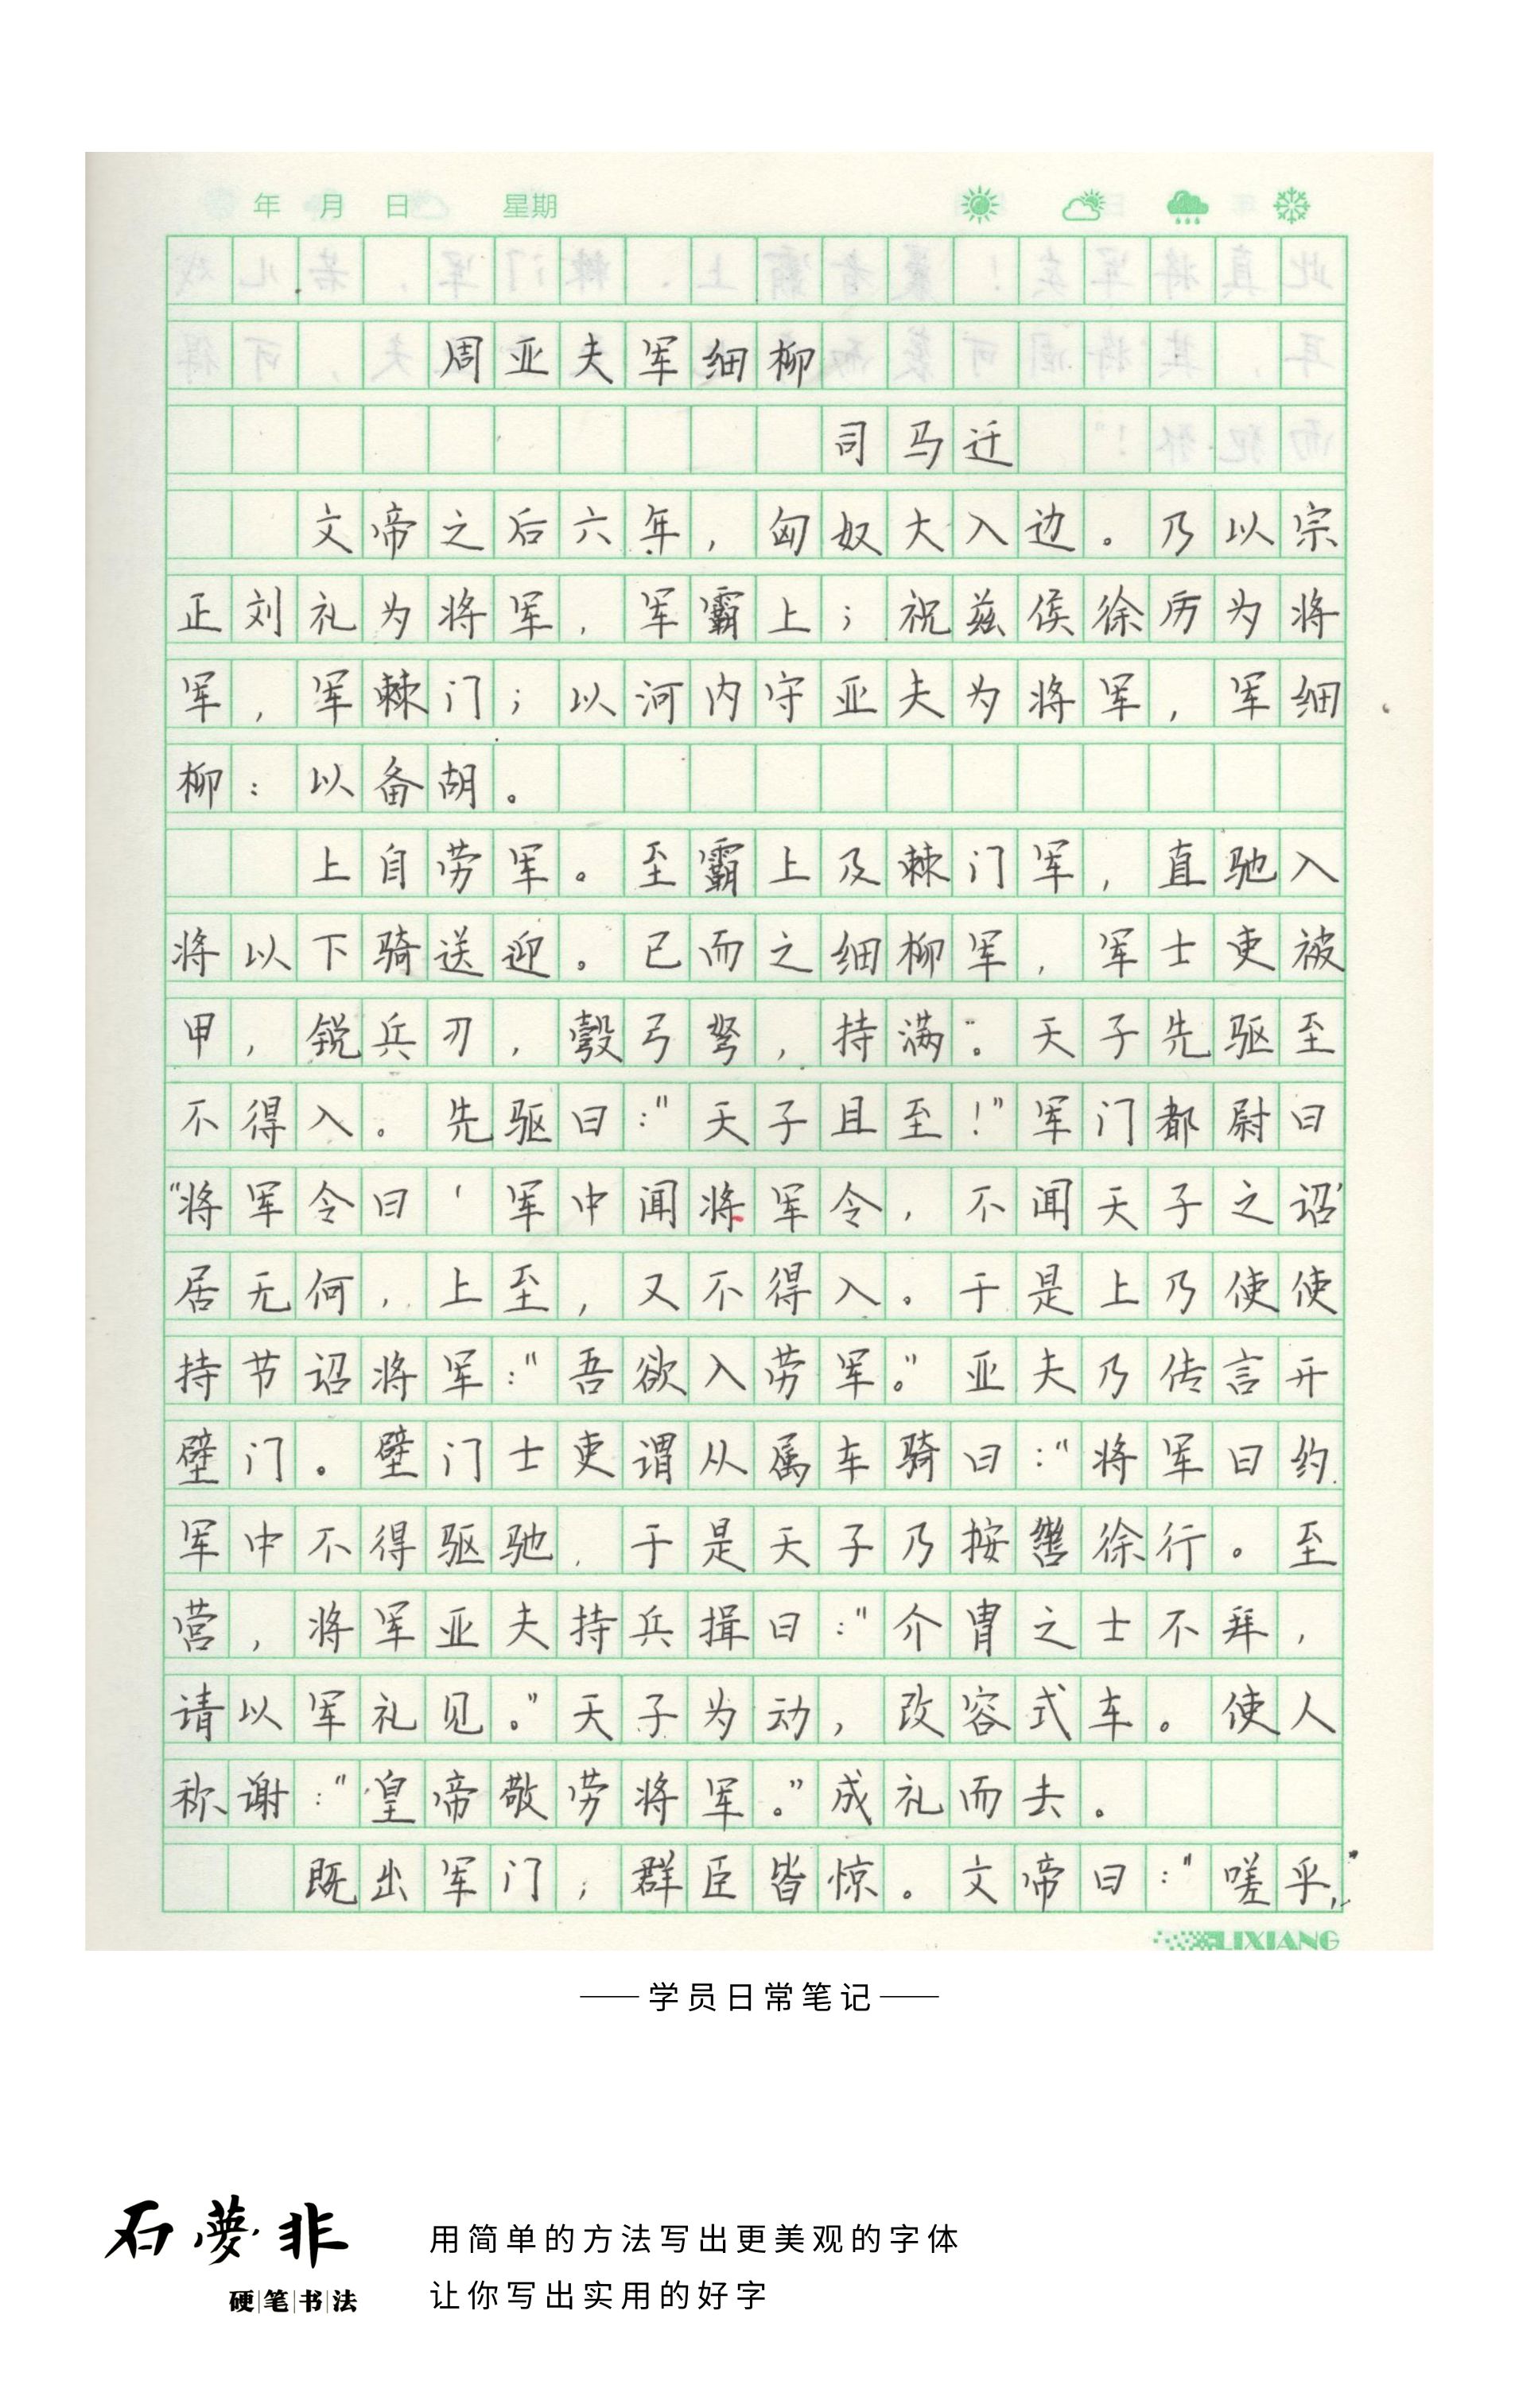 年 月 日 星期
周亚夫军细柳
司马迁
文帝之后六年，匈奴大入边。乃以宗
正刘礼为将军，军霸上；祝兹侯徐厉为将
军，军棘门；以河内守亚夫为将军，军细
柳：以备胡。
上自劳军。至霸上及棘门军，直驰入
将以下骑送迎。已而之细柳军，军士吏被
甲，锐兵刃，彀弓弩，持满。天子先驱至
不得入。先驱曰：“天子且至！”军门都尉曰
“将军令曰‘军中闻将军令，不闻天子之诏’
居无何，上至，又不得入。于是上乃使使
持节诏将军：“吾欲入劳军。”亚夫乃传言开
壁门。壁门士吏谓从属车骑曰：“将军曰约
军中不得驱驰，于是天子乃按辔徐行。至
营，将军亚夫持兵揖曰：“介胄之士不拜，
请以军礼见。”天子为动，改容式车。使人
称谢：“皇帝敬劳将军。”成礼而去。
既出军门，群臣皆惊。文帝曰：“嗟乎，
LIXIANG
学员日常笔记
石夢非
硬笔书法
用简单的方法写出更美观的字体
让你写出实用的好字